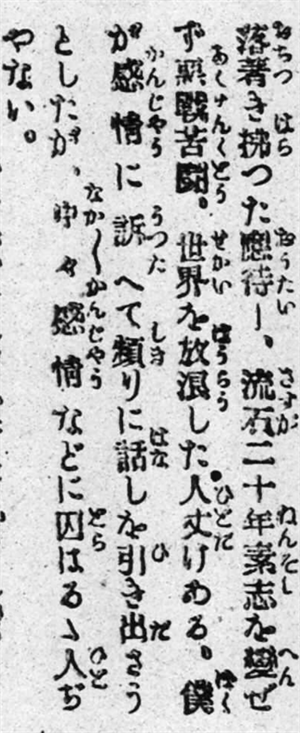 落著き拂つた應待ー、流石二十年素志を變ぜ
ず惡戰苦鬪。世界を放浪した人丈けある。僕
が感情に訴へて頻りに話しを引き出さう
としたが、中々感情などに囚はるゝ人ぢ
やない。